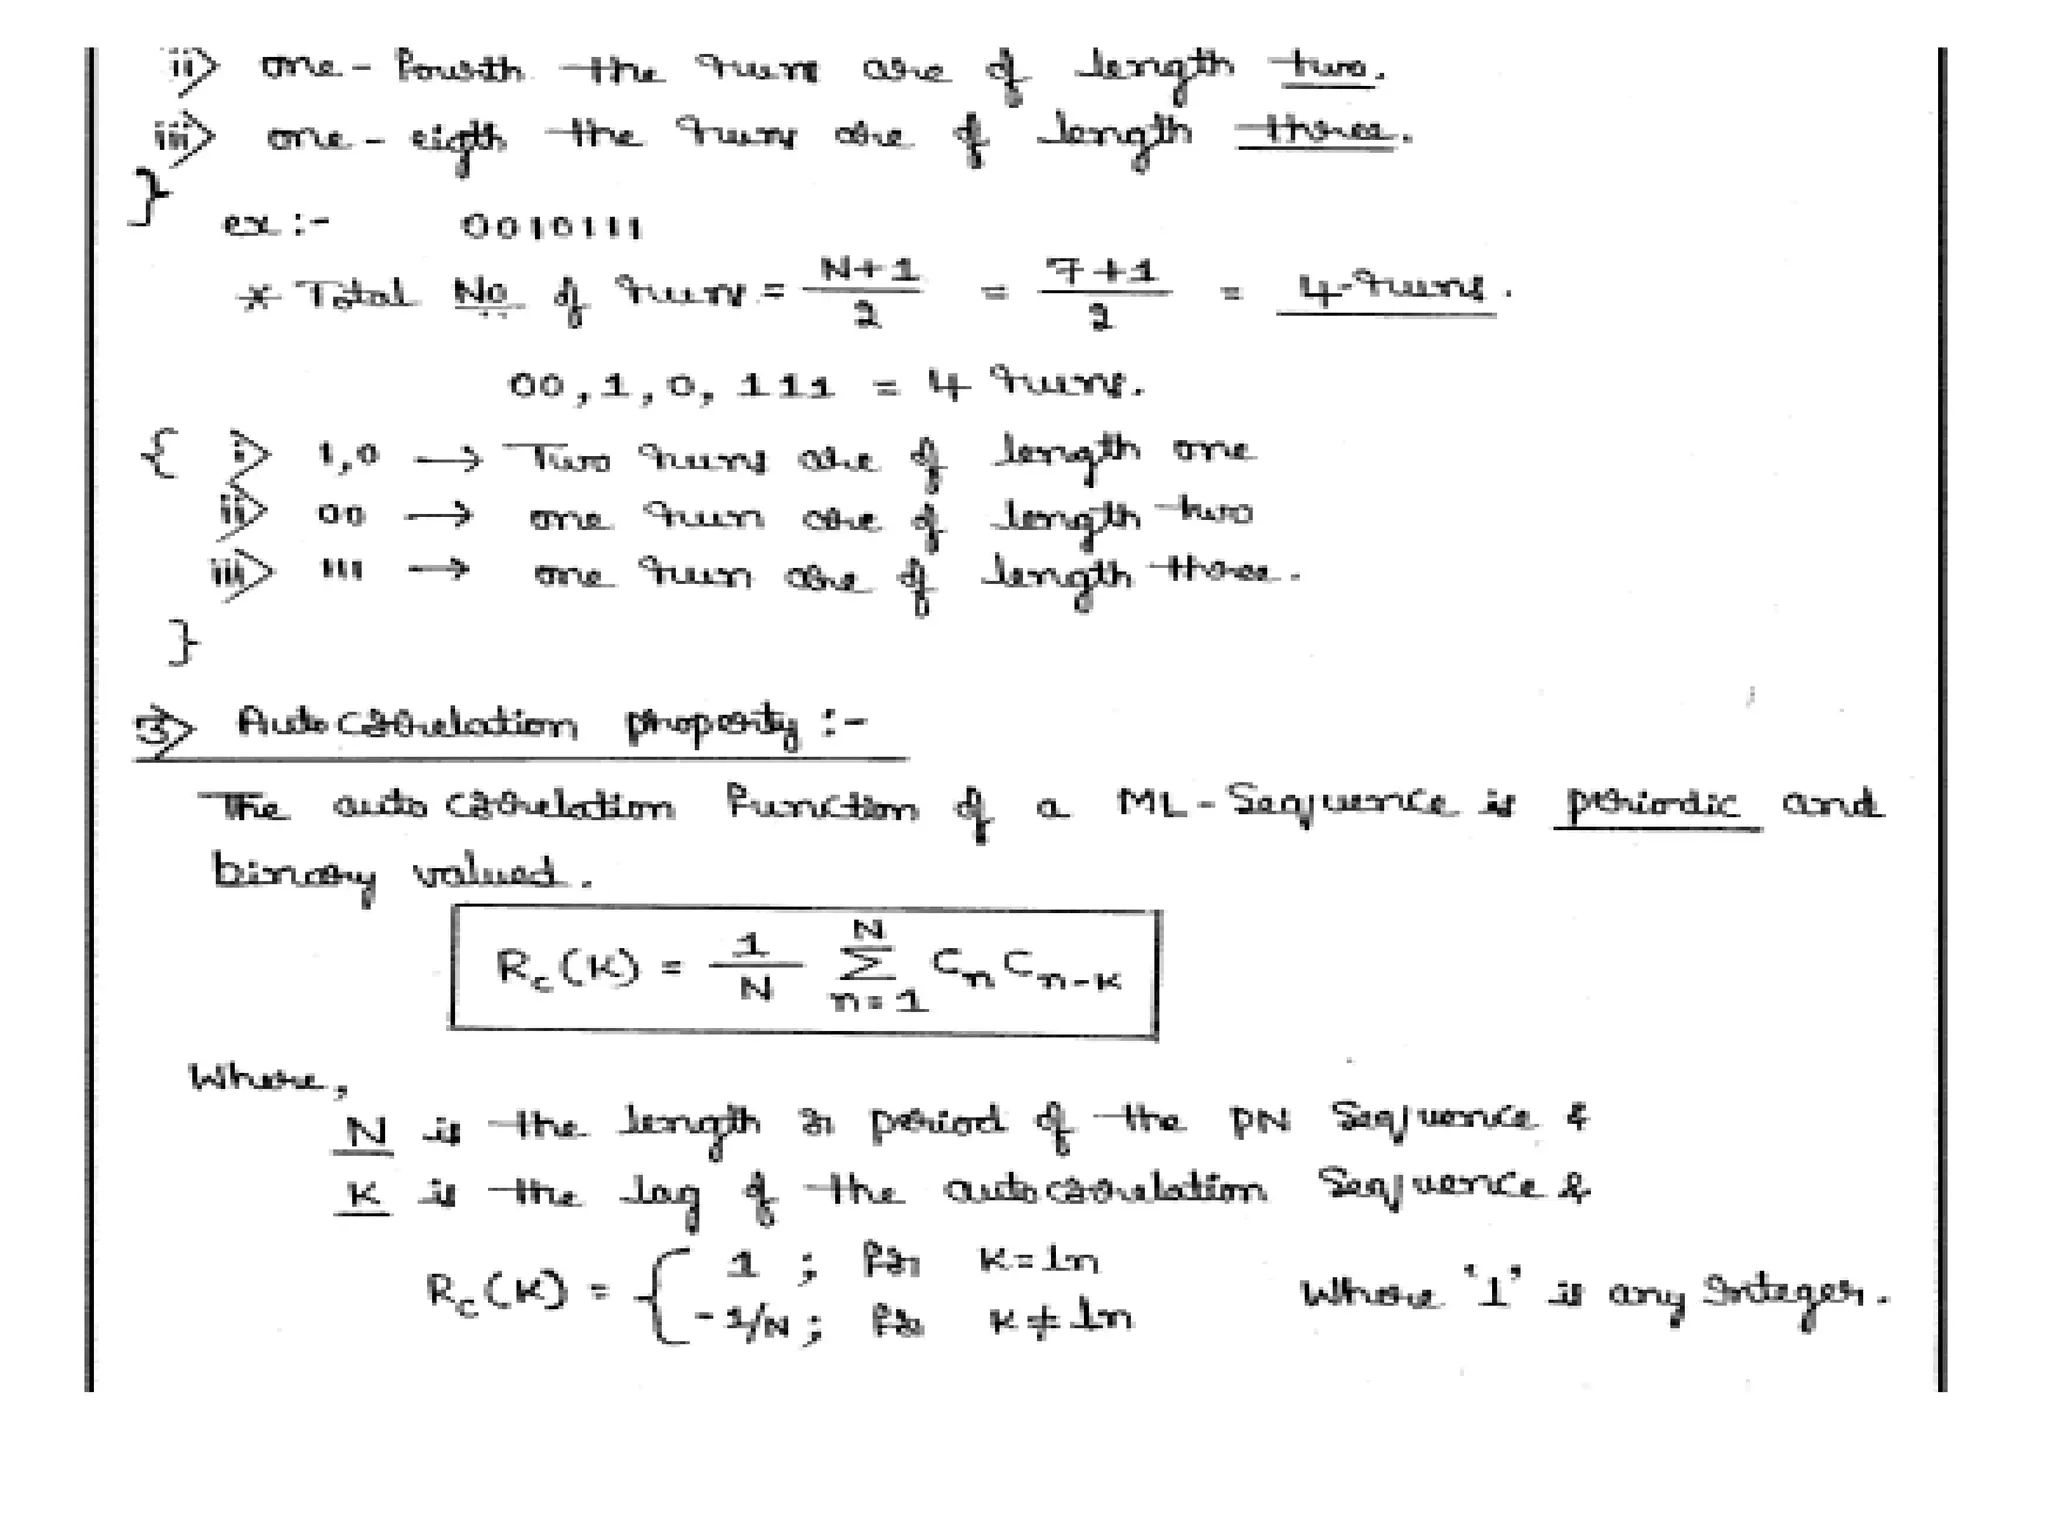 ii> one-fourth the runs are of length two.
iii> one-eigth the runs are of length three.
}
ex:- 0010111
* Total No of runs = N+1/2 = 7+1/2 = 4-runs.
00, 1, 0, 111 = 4 runs.
{ i> 1,0 → Two runs are of length one
ii> 00 → one run are of length two
iii> 111 → one run are of length three.
}
3> Autocorrelation property:-
The autocorrelation function of a ML-Sequence is periodic and
binary valued.
Rc(K) = 1/N Σ n=1 N Cn Cn-K
Where,
N is the length or period of the PN Sequence &
K is the lag of the autocorrelation Sequence &
Rc(K) = { 1 ; for K=ln
-1/N ; for K≠ln Where 'l' is any Integer.